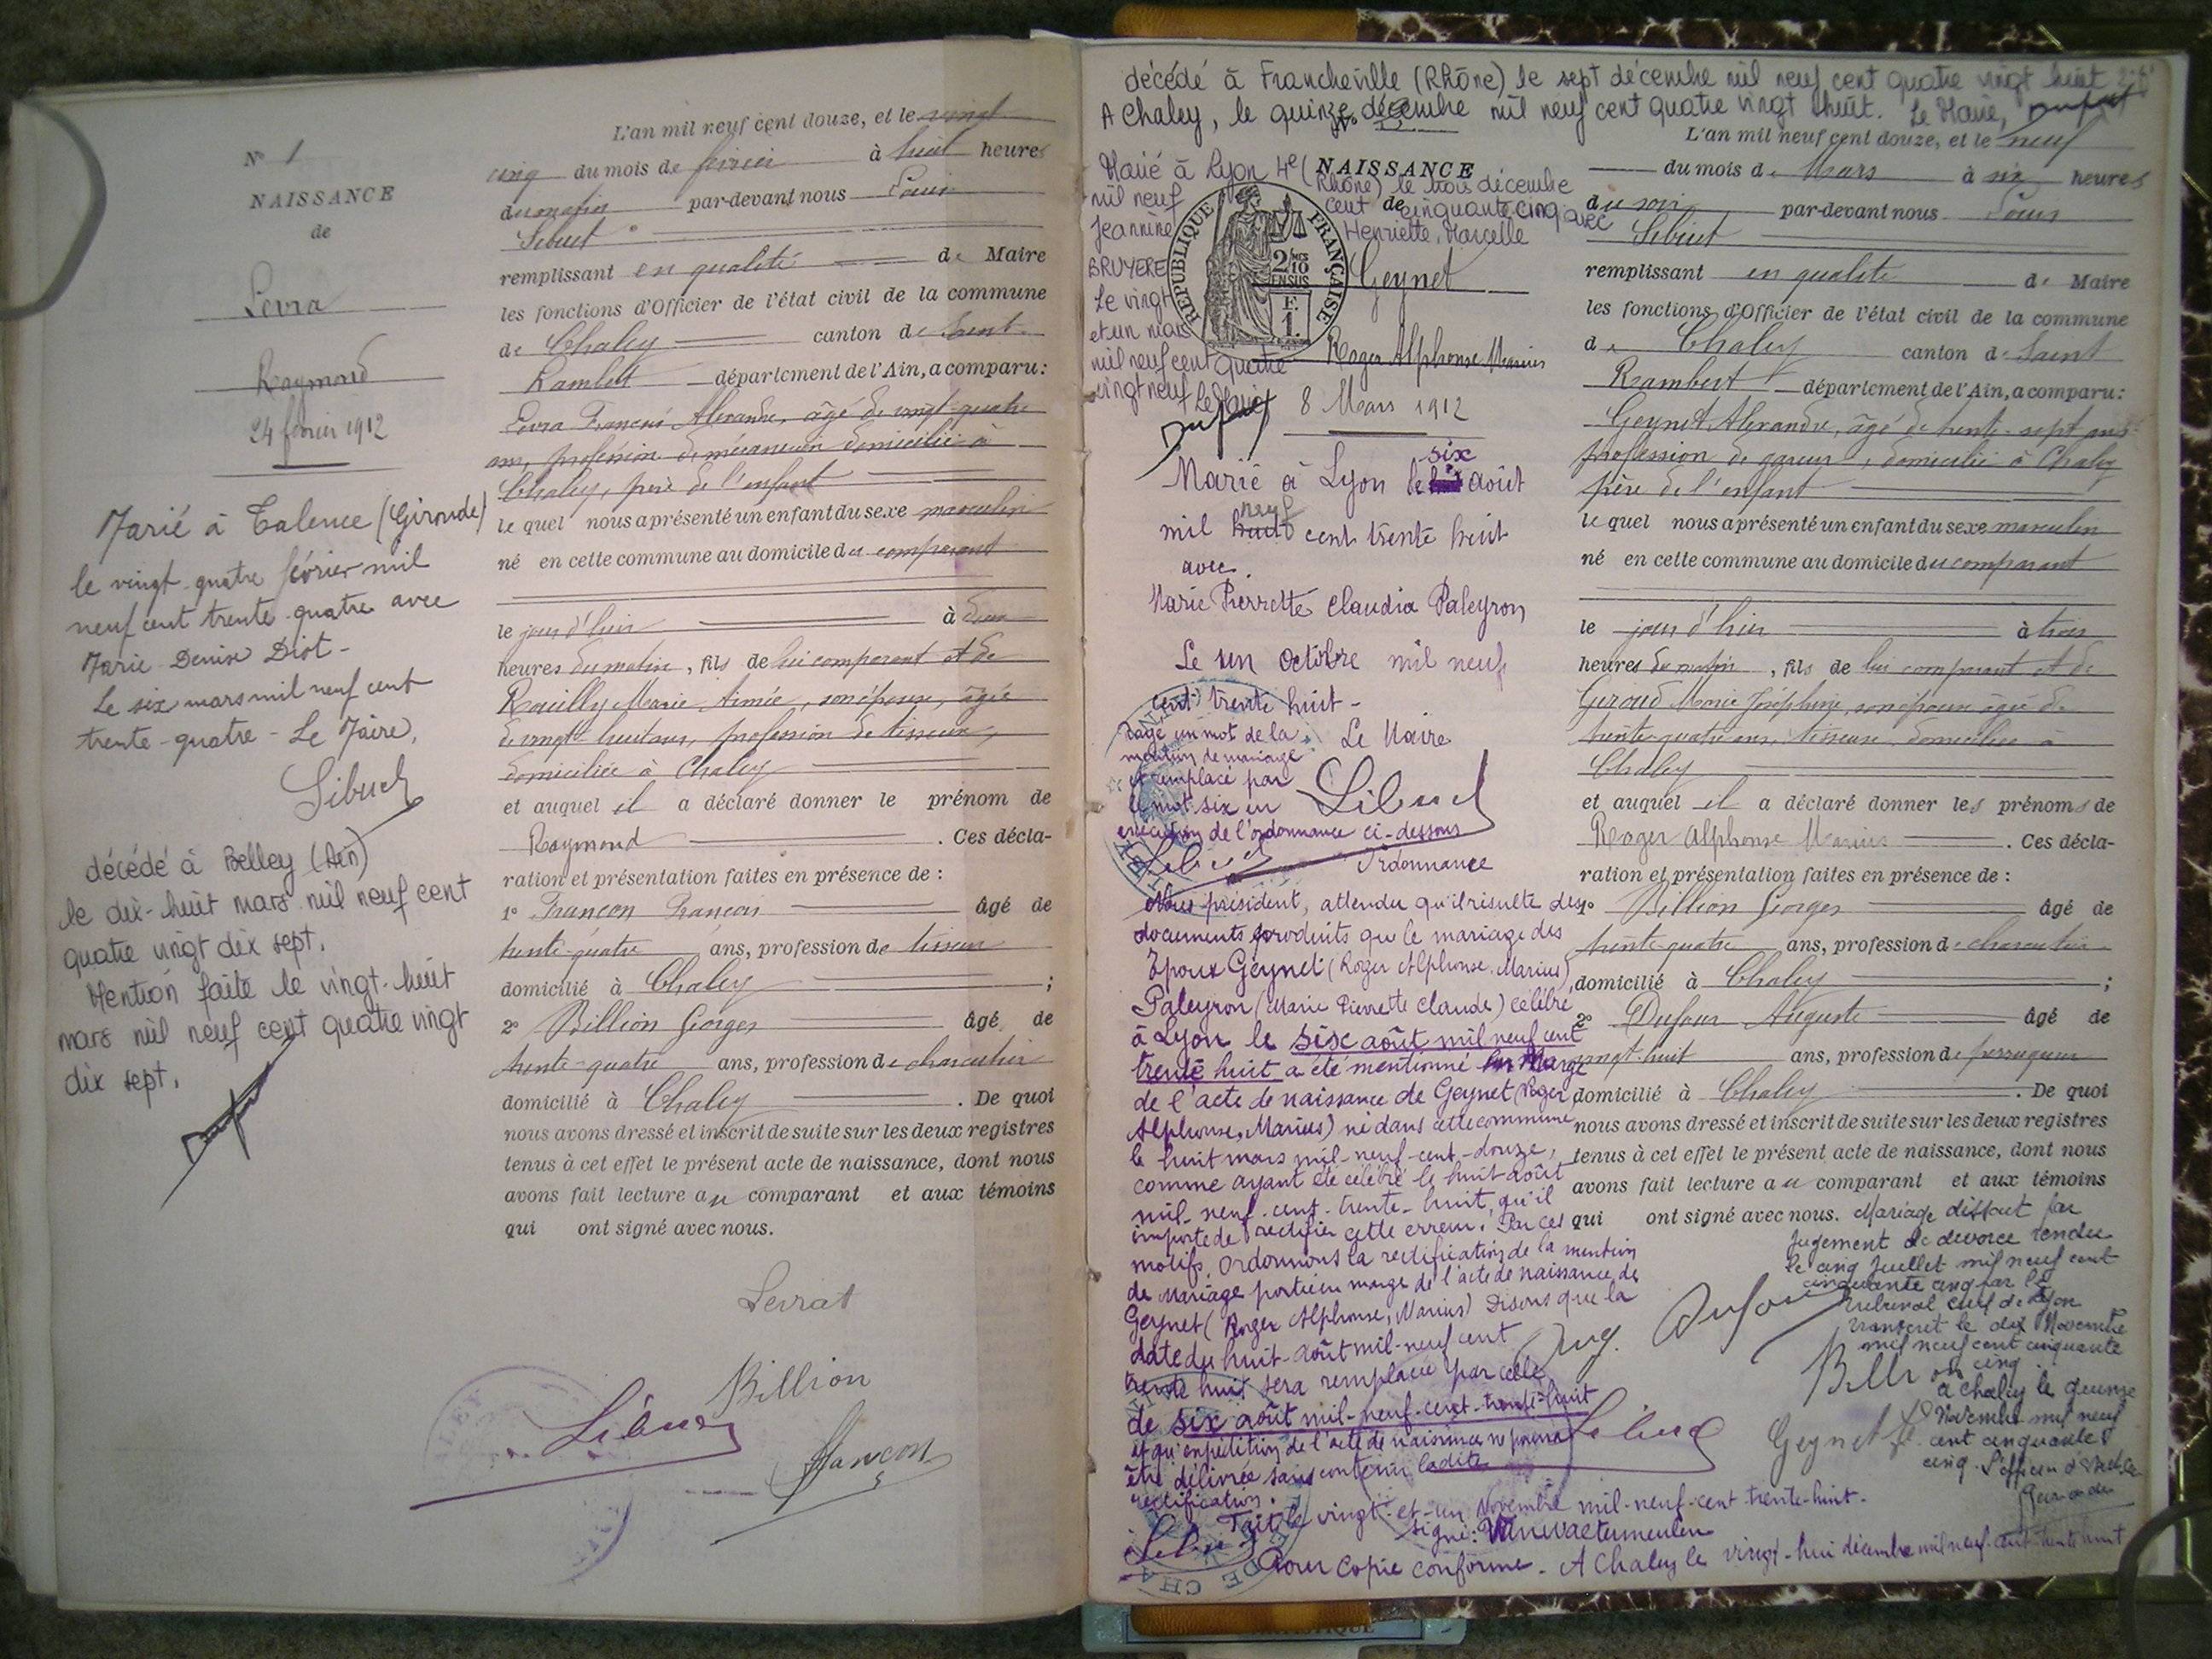 N° 1
NAISSANCE
de
Levra
Raymond
24 février 1912
Marié à Talence (Gironde)
le vingt-quatre février mil
neuf cent trente-quatre avec
Marie Denise Diot -
Le six mars mil neuf cent
trente-quatre - Le Maire,
Sibuet
décédé à Belley (Ain)
le dix-huit mars mil neuf cent
quatre vingt dix sept.
Mention faite le vingt-huit
mars mil neuf cent quatre vingt
dix sept.
L'an mil neuf cent douze, et le vingt
cinq du mois de février à huit heures
du matin par-devant nous Louis
Sibuet
remplissant en qualité de Maire
les fonctions d'Officier de l'état civil de la commune
de Chaley canton de Saint
Rambert département de l'Ain, a comparu:
Levra François Alexandre, âgé de vingt-quatre
ans, profession de mécanicien domicilié à
Chaley, père de l'enfant
le quel nous a présenté un enfant du sexe masculin
né en cette commune au domicile du comparant
le jour d'hier à deux
heures du matin, fils de lui comparant et de
Rouilly Marie Aimée, son épouse, âgée
de vingt-huit ans, profession de tisseuse,
domiciliée à Chaley
et auquel il a déclaré donner le prénom de
Raymond. Ces décla-
ration et présentation faites en présence de :
1° Françon François âgé de
trente-quatre ans, profession de tisseur
domicilié à Chaley ;
2° Billion Georges âgé de
trente-quatre ans, profession de charcutier
domicilié à Chaley. De quoi
nous avons dressé et inscrit de suite sur les deux registres
tenus à cet effet le présent acte de naissance, dont nous
avons fait lecture au comparant et aux témoins
qui ont signé avec nous.
Levrat
Billion
Sibuet
Françon
décédé à Francheville (Rhône) le sept décembre mil neuf cent quatre vingt huit
A Chaley, le quinze décembre mil neuf cent quatre vingt huit. Le Maire,
NAISSANCE
de
Marié à Lyon 4e (Rhône) le trois décembre
mil neuf cent cinquante cinq avec
Jeannine Henriette, Marcelle
BRUYERE
Le vingt
et un mars
mil neuf cent quatre
vingt neuf Le Maire
RÉPUBLIQUE FRANÇAISE
2/10
EN SUS
F.
1.
Geynet
Roger Alphonse Marius
8 Mars 1912
Marié à Lyon le six août
mil neuf cent trente huit
avec
Marie Pierrette Claudia Paleyron
Le un octobre mil neuf
cent trente huit -
Le Maire
Sibuet
Rayé un mot de la
mention de mariage
et remplacé par
le mot six en
exécution de l'ordonnance ci-dessous
Sibuet
Ordonnance
Nous président, attendu qu'il résulte des
documents produits que le mariage des
Epoux Geynet (Roger Alphonse, Marius),
Paleyron (Marie Pierrette Claude) célébré
à Lyon le six août mil neuf cent
trente huit a été mentionné en marge
de l'acte de naissance de Geynet (Roger
Alphonse, Marius) né dans cette commune
le huit mars mil-neuf-cent-douze,
comme ayant été célébré le huit août
mil-neuf-cent-trente-huit, qu'il
importe de rectifier cette erreur. Par ces
motifs, Ordonnons la rectification de la mention
de mariage portée en marge de l'acte de naissance de
Geynet (Roger Alphonse, Marius) Disons que la
date du huit-août mil-neuf cent
trente huit sera remplacée par celle
de six août mil-neuf-cent-trente-huit
et qu'expédition de l'acte de naissance ne pourra
être délivrée sans contenir ladite
rectification.
Fait le vingt-et-un Novembre mil-neuf-cent-trente-huit.
signé:
Pour copie conforme - A Chaley le vingt-huit décembre mil neuf-cent-trente huit
Sibuet
L'an mil neuf cent douze, et le neuf
du mois de Mars à six heures
du soir par-devant nous Louis
Sibuet
remplissant en qualité de Maire
les fonctions d'Officier de l'état civil de la commune
de Chaley canton de Saint
Rambert département de l'Ain, a comparu:
Geynet Alexandre, âgé de trente-sept ans
profession de gareur, domicilié à Chaley
père de l'enfant
le quel nous a présenté un enfant du sexe masculin
né en cette commune au domicile du comparant
le jour d'hier à trois
heures du matin, fils de lui comparant et de
Giroud Marie Joséphine, son épouse âgée de
trente-quatre ans, tisseuse, domiciliée à
Chaley
et auquel il a déclaré donner les prénoms de
Roger Alphonse Marius. Ces décla-
ration et présentation faites en présence de :
1° Billion Georges âgé de
trente-quatre ans, profession de charcutier
domicilié à Chaley ;
2° Dufour Auguste âgé de
vingt-huit ans, profession de perruquier
domicilié à Chaley. De quoi
nous avons dressé et inscrit de suite sur les deux registres
tenus à cet effet le présent acte de naissance, dont nous
avons fait lecture au comparant et aux témoins
qui ont signé avec nous. Mariage dissout par
jugement de divorce rendu
le cinq Juillet mil neuf cent
cinquante cinq par le
tribunal civil de Lyon
transcrit le dix Novembre
mil neuf cent cinquante
cinq
à Chaley le quinze
Novembre mil neuf
cent cinquante
cinq. L'officier d'
Aug. Dufour
Billion
Sibuet
Geynet